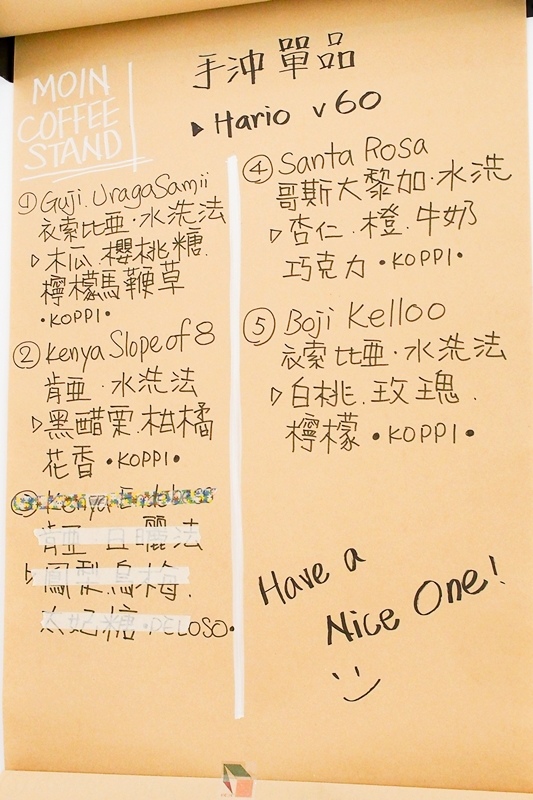 MOIN
COFFEE
STAND
手沖單品
▶ Hario V60
① Guji. Uraga Samii
衣索比亜·水洗法
▷木瓜.櫻桃糖.
檸檬馬鞭草
•KOPPI•
② Kenya Slope of 8
肯亜·水洗法
▷黑醋栗.柑橘
花香•KOPPI•
③ Kenya
肯亜 日曬法
鳳梨.烏梅.
太妃糖•DELOSO•
④ Santa Rosa
哥斯大黎加·水洗
▷杏仁.橙.牛奶
巧克力•KOPPI•
⑤ Boji Kelloo
衣索比亜·水洗法
▷白桃.玫瑰.
檸檬•KOPPI•
Have a
Nice One!